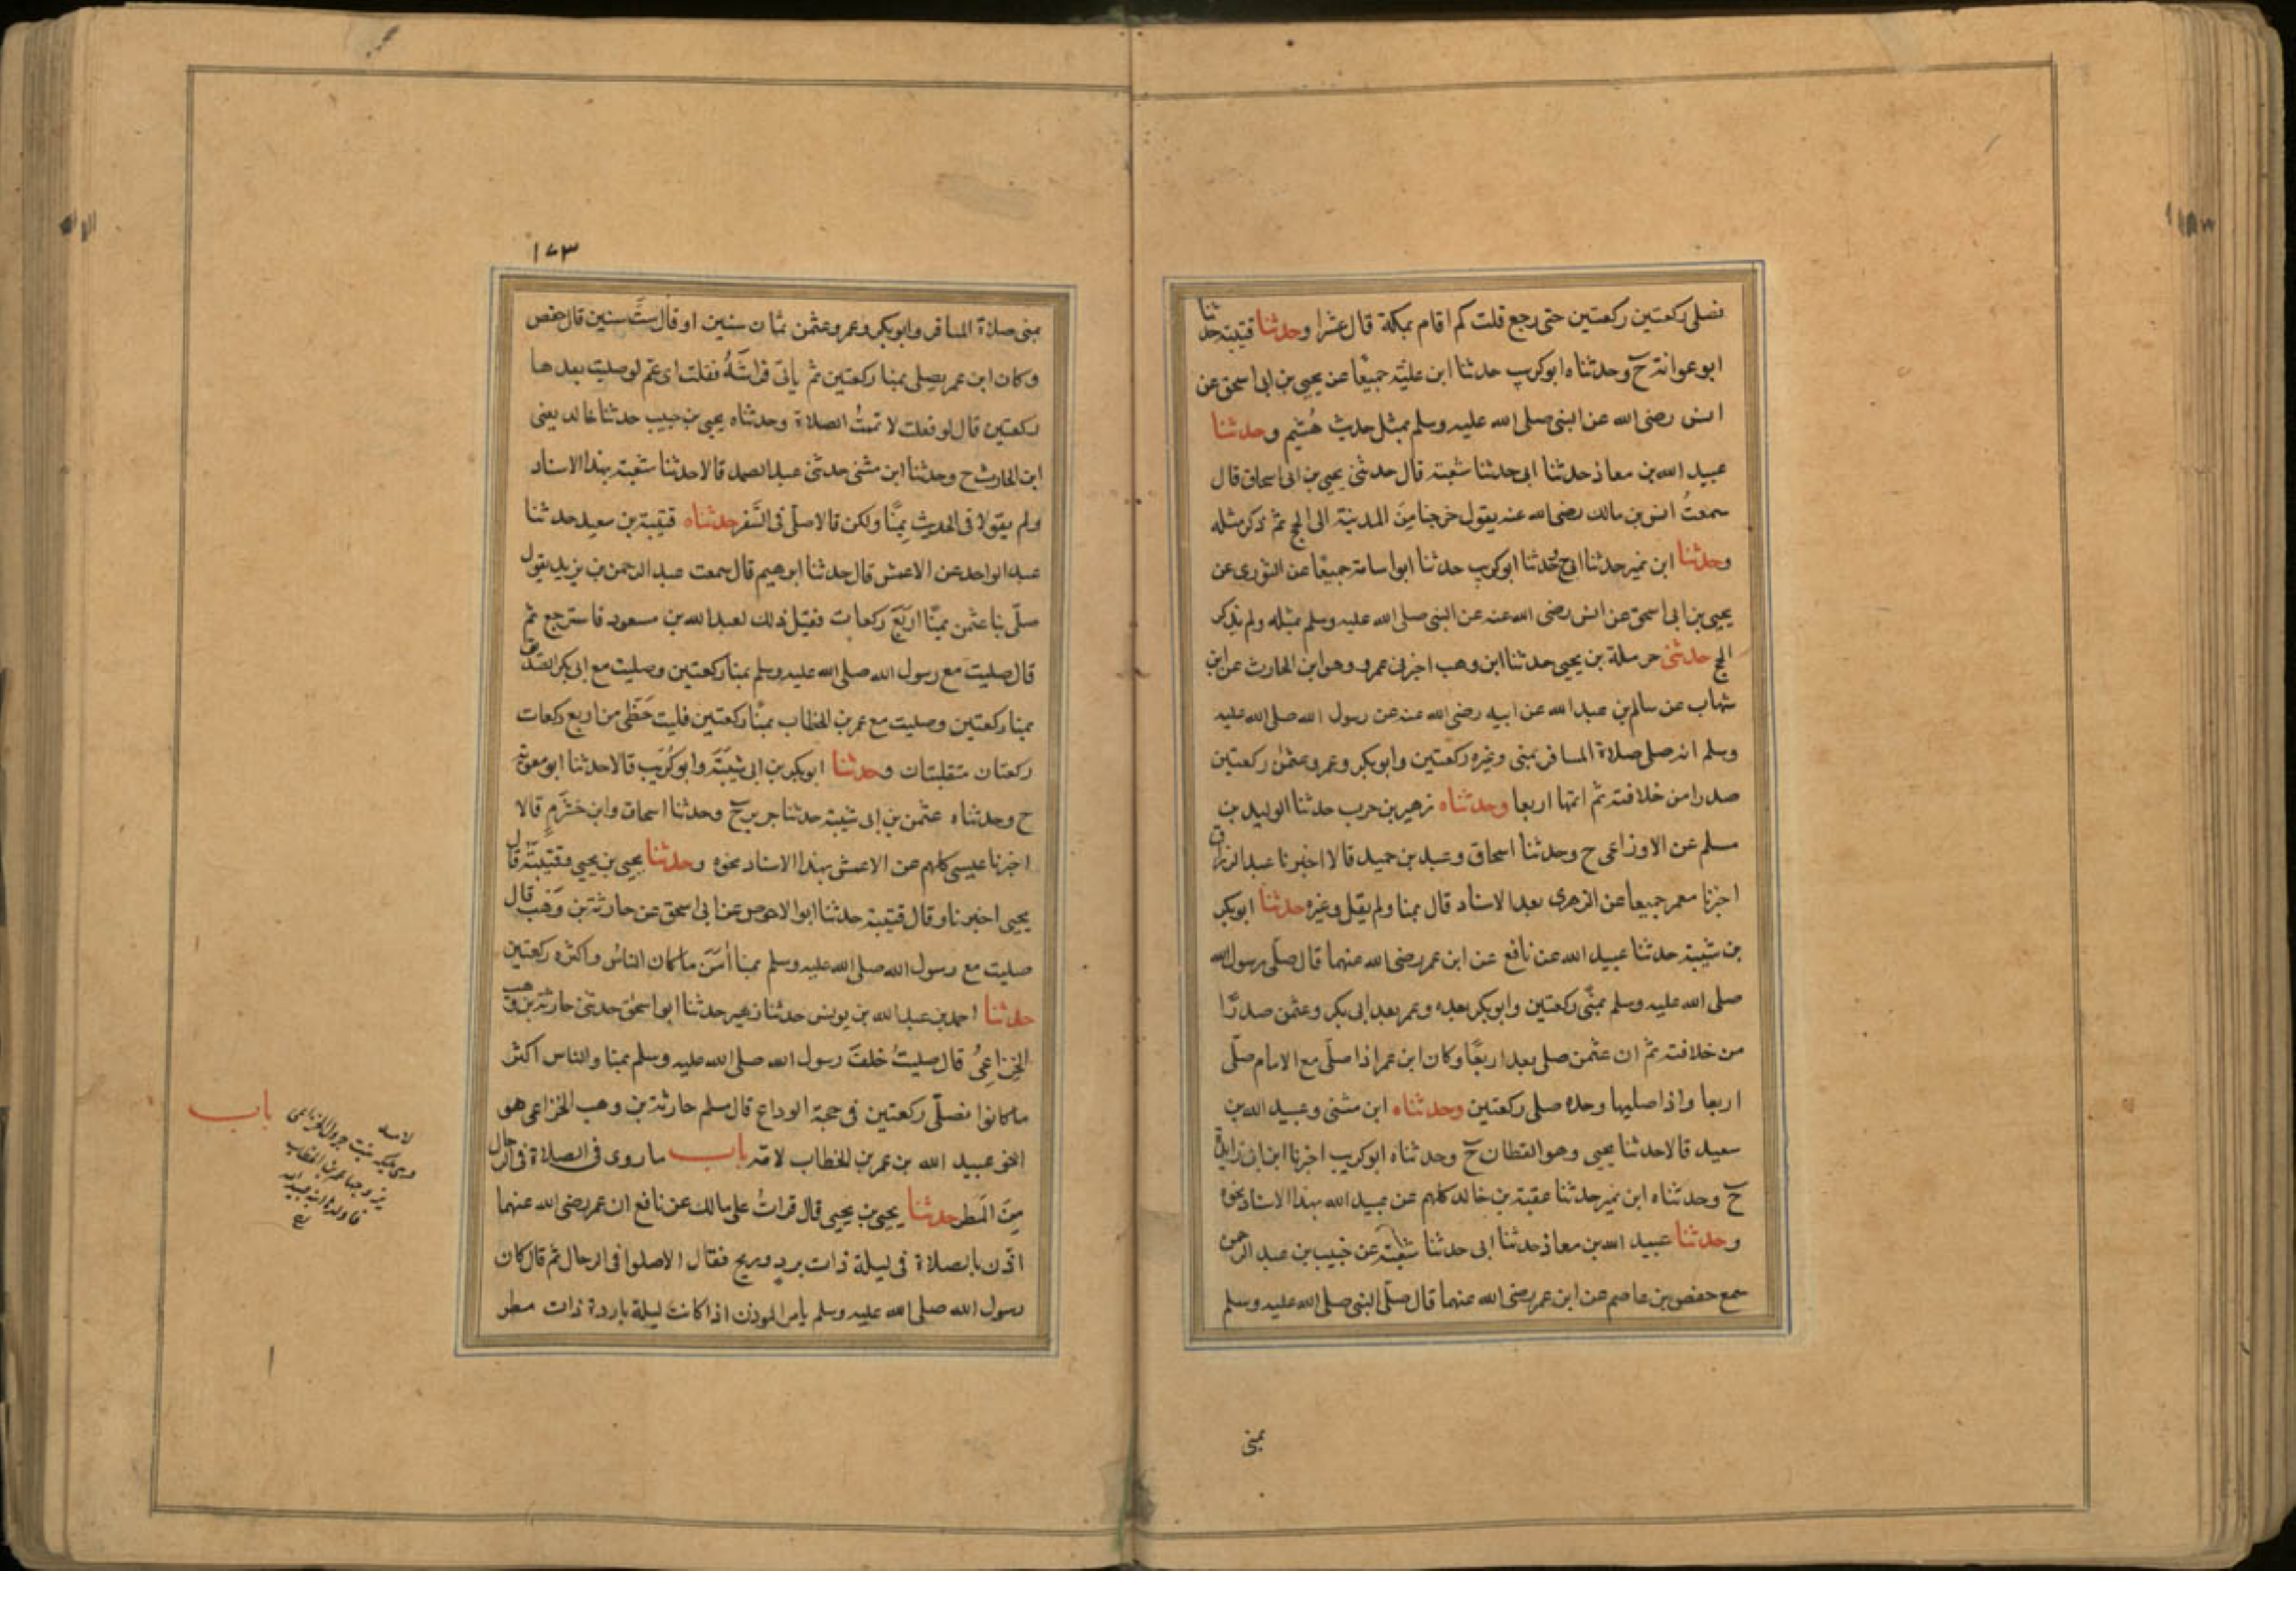 فصلى ركعتين ركعتين حتى رجع قلت كم اقام بمكة قال عشرا وحدثنا قتيبة حدثنا
ابو عوانة ح وحدثناه ابو كريب حدثنا ابن علية جميعًا عن يحيى بن ابى اسحق عن
انس رضى الله عن النبى صلى الله عليه وسلم بمثل حديث هُشيم وحدثنا
عبيد الله بن معاذ حدثنا ابى حدثنا شعبة قال حدثنى يحيى بن ابى اسحاق قال
سمعتُ انس بن مالك رضى الله عنه يقول خرجنا مِنَ المدينة الى الحج ثم ذكر مثله
وحدثنا ابن نمير حدثنا ابى ح وحدثنا ابو كريب حدثنا ابو اسامة جميعًا عن الثورى عن
يحيى بن ابى اسحق عن انس رضى الله عنه عن النبى صلى الله عليه وسلم بمثله ولم يذكر
الحج حدثنى حرملة بن يحيى حدثنا ابن وهب اخبرنى عمرو وهو ابن الحارث عن ابن
شهاب عن سالم بن عبد الله عن ابيه رضى الله عنه عن رسول الله صلى الله عليه
وسلم انه صلى صلاة المسافر بمنى وغيره ركعتين وابو بكر وعمر وعثمٰن ركعتين
صدرا من خلافته ثم اتمها اربعا وحدثناه زهير بن حرب حدثنا الوليد بن
مسلم عن الاوزاعى ح وحدثنا اسحاق وعبد بن حميد قالا اخبرنا عبد الرزاق
اخبرنا معمر جميعا عن الزهرى بهذا الاسناد قال بمنا ولم يقل وغيره حدثنا ابو بكر
بن شيبة حدثنا عبيد الله عن نافع عن ابن عمر رضى الله عنهما قال صلّى رسول الله
صلى الله عليه وسلم بمنًى ركعتين وابو بكر بعده وعمر بعد ابى بكر وعثمن صدرًا
من خلافته ثم ان عثمن صلى بعد اربعًا وكان ابن عمر اذا صلّى مع الامام صلّى
اربعا واذا صليها وحده صلى ركعتين وحدثناه ابن مثنى وعبيد الله بن
سعيد قالا حدثنا يحيى وهو القطان ح وحدثناه ابو كريب اخبرنا ابن ابى زايدة
ح وحدثناه ابن نمير حدثنا عقبة بن خالد كلهم عن عبيد الله بهذا الاسناد نحوه
وحدثنا عبيد الله بن معاذ حدثنا ابى حدثنا شعبة عن خبيب بن عبد الرحمن
سمع حفص بن عاصم عن ابن عمر رضى الله عنهما قال صلّى النبى صلى الله عليه وسلم
بمنى
١٧٣
بمنى صلاة المسافر وابو بكر وعمر وعثمن ثمان سنين او قال ستَّ سنين قال حفص
وكان ابن عمر يصلى بمنا ركعتين ثم ياتى فراشَهُ فقلت اى عَمّ لو صليت بعدها
ركعتين قال لو فعلت لاتممتُ الصلاة وحدثناه يحيى بن حبيب حدثنا خالد يعنى
ابن الحارث ح وحدثنا ابن مثنى حدثنى عبد الصمد قالا حدثنا شعبة بهذا الاسناد
ولم يقولا فى الحديث بِمِنًا ولكن قالا صلّى فى السَّفر حدثناه قتيبة بن سعيد حدثنا
عبد الواحد عن الاعمش قال حدثنا ابرهيم قال سمعت عبد الرحمن بن يزيد يقول
صلّى بنا عثمن بمنًا اربَعَ ركعات فقيل ذلك لعبد الله بن مسعود فاسترجع ثم
قال صليت مع رسول الله صلى الله عليه وسلم بمنا ركعتين وصليت مع ابى بكر الصديق
بمنا ركعتين وصليت مع عمر بن الخطاب بمنًا ركعتين فليت حَظّى من اربع ركعات
ركعتان متقبلتان وحدثنا ابو بكر بن ابى شيبَةَ وابو كُرَيب قالا حدثنا ابو معوية
ح وحدثناه عثمن بن ابى شيبة حدثنا جرير ح وحدثنا اسحاق وابن خَشْرَمٍ قالا
اخبرنا عيسى كلهم عن الاعمش بهذا الاسناد نحوه وحدثنا يحيى بن يحيى وقتيبة قال
يحيى اخبرنا وقال قتيبة حدثنا ابو الاحوص عن ابى اسحق عن حارثة بن وَهْب قال
صليت مع رسول الله صلى الله عليه وسلم بمنا اٰمَنَ ما كان الناسُ واكثره ركعتين
حدثنا احمد بن عبد الله بن يونس حدثنا زهير حدثنا ابو اسحٰق حدثنى حارثة بن وهب
الخزاعِىُّ قال صليتُ خلفَ رسول الله صلى الله عليه وسلم بمنا والناس اكثر
ما كانوا فصلّى ركعتين فى حجة الوداع قال مسلم حارثة بن وهب الخزاعى هو
اخو عبيد الله بن عمر بن الخطاب لامّه باب ما روى فى الصلاة فى الرحال
مِنَ المَطر حدثنا يحيى بن يحيى قال قراتُ على مالك عن نافع ان عمر رضى الله عنهما
اذّن بالصلاة فى ليلة ذات بردٍ وريح فقال الا صلوا فى الرحال ثم قال كان
رسول الله صلى الله عليه وسلم يامر الموذن اذا كانت ليلة باردة ذات مطر
باب
بنت جرول الخزاعى
تزوجها عمر بن الخطاب